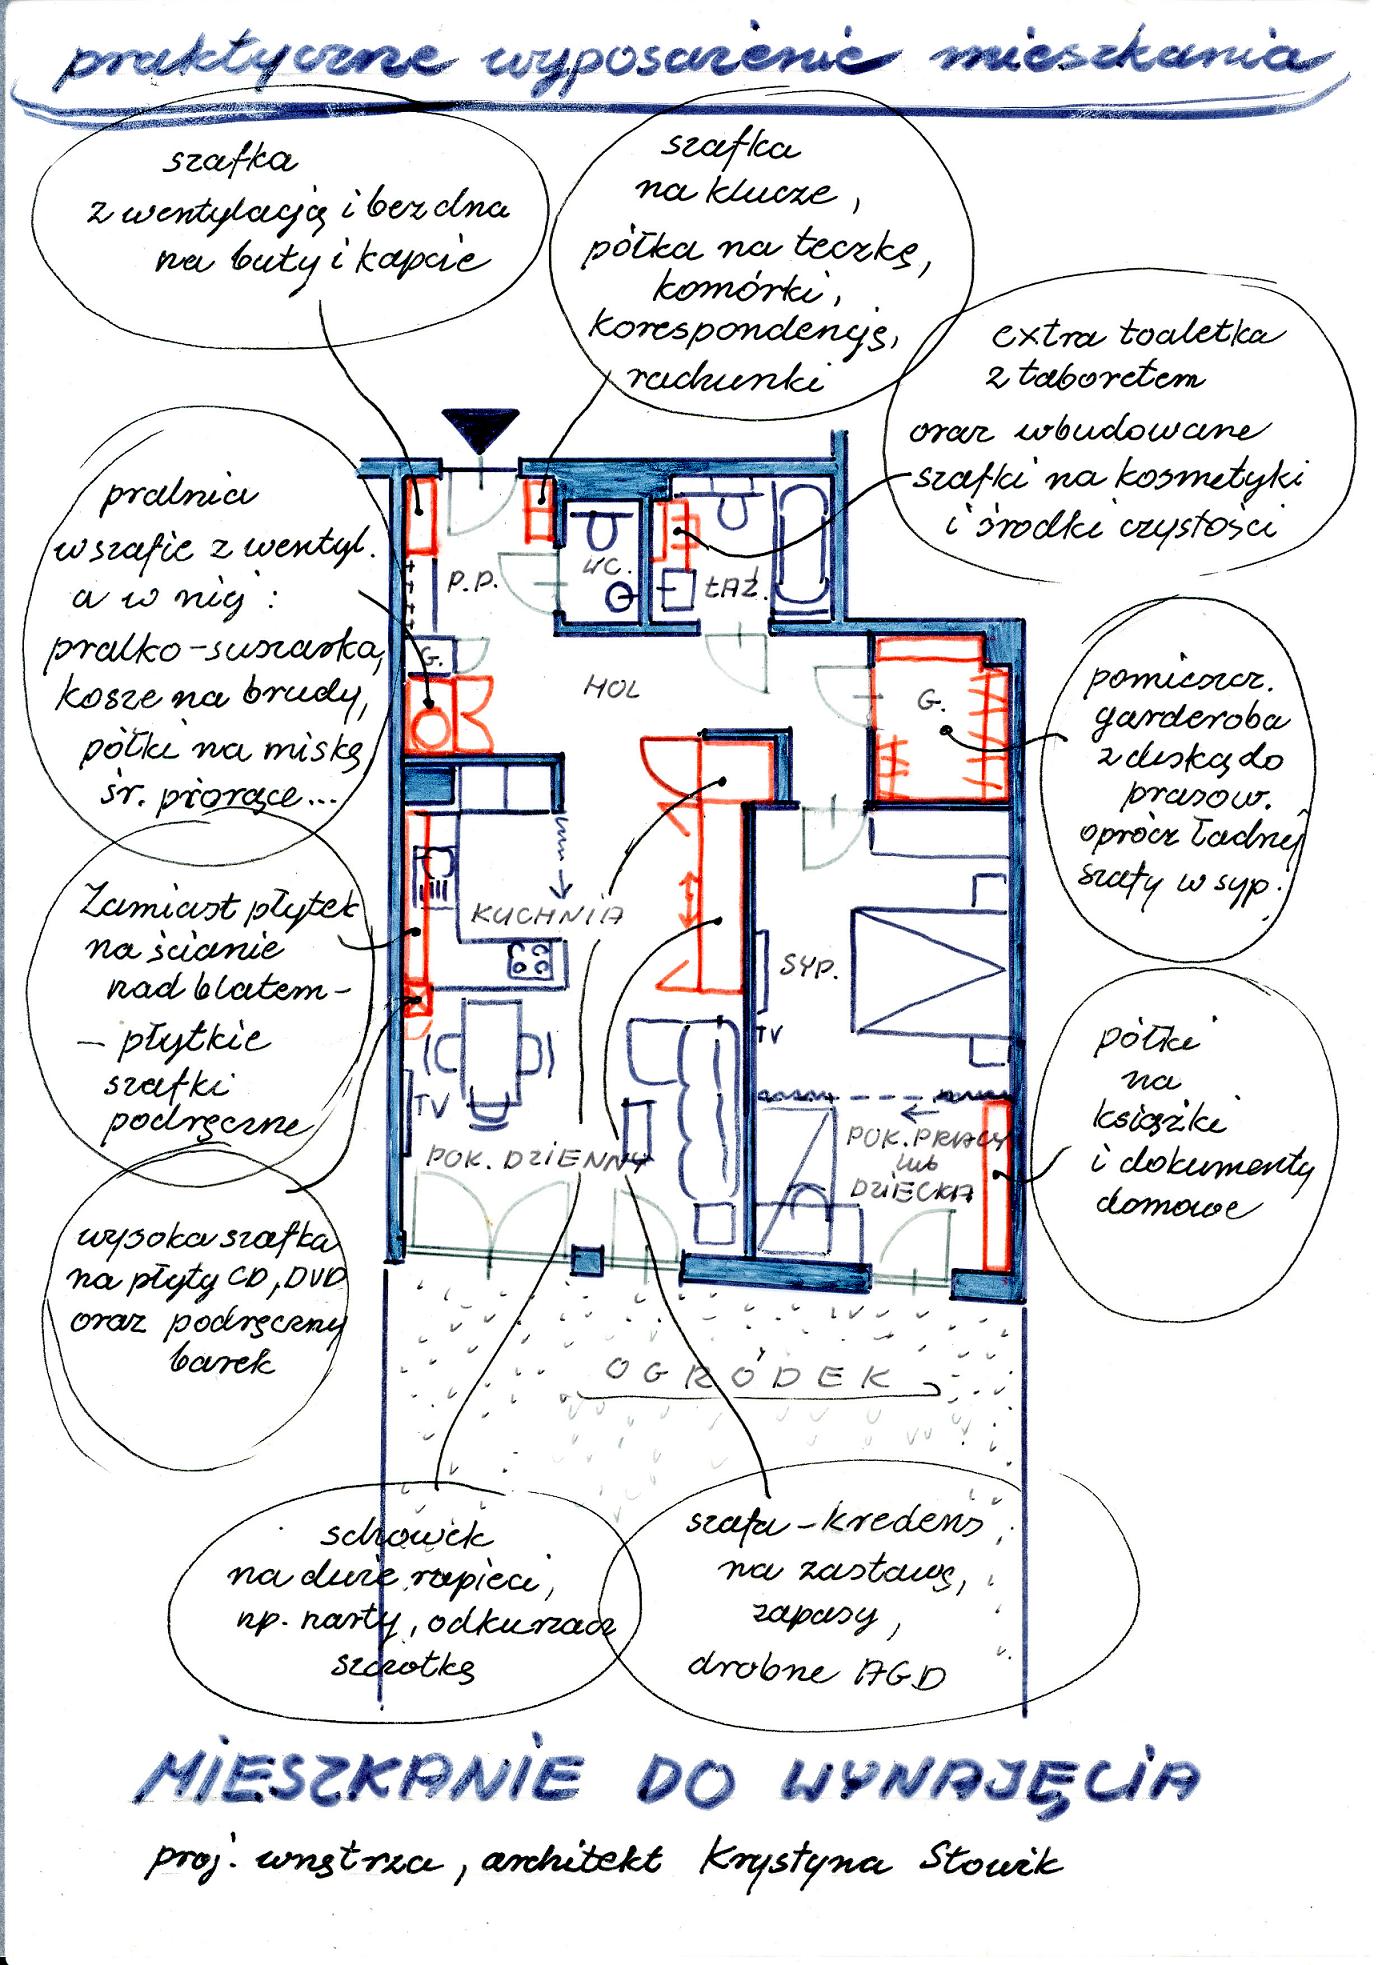 praktyczne wyposażenie mieszkania
szafka
z wentylacją i bez dna
na buty i kapcie
szafka
na klucze,
półka na teczkę,
komórki,
korespondencję,
rachunki
extra toaletka
z taboretem
oraz wbudowane
szafki na kosmetyki
i środki czystości
pralnia
w szafie z wentyl.
a w niej :
pralko-suszarka,
kosze na brudy,
półki na miskę
śr. piorące...
P.P.
WC.
ŁAŹ.
G.
HOL
G.
pomieszcz.
garderoba
z deską do
prasow.
oprócz ładnej
szafy w syp.
Zamiast płytek
na ścianie
nad blatem -
- płytkie
szafki
podręczne
KUCHNIA
SYP.
TV
TV
POK. DZIENNY
POK. PRACY
lub
DZIECKA
półki
na
książki
i dokumenty
domowe
wysoka szafka
na płyty CD, DVD
oraz podręczny
barek
OGRÓDEK
schowek
na duże rzeczy,
np. narty, odkurzacz
szczotkę
szafa - kredens
na zastawę,
zapasy,
drobne AGD
MIESZKANIE DO WYNAJĘCIA
proj. wnętrza, architekt Krystyna Słowik